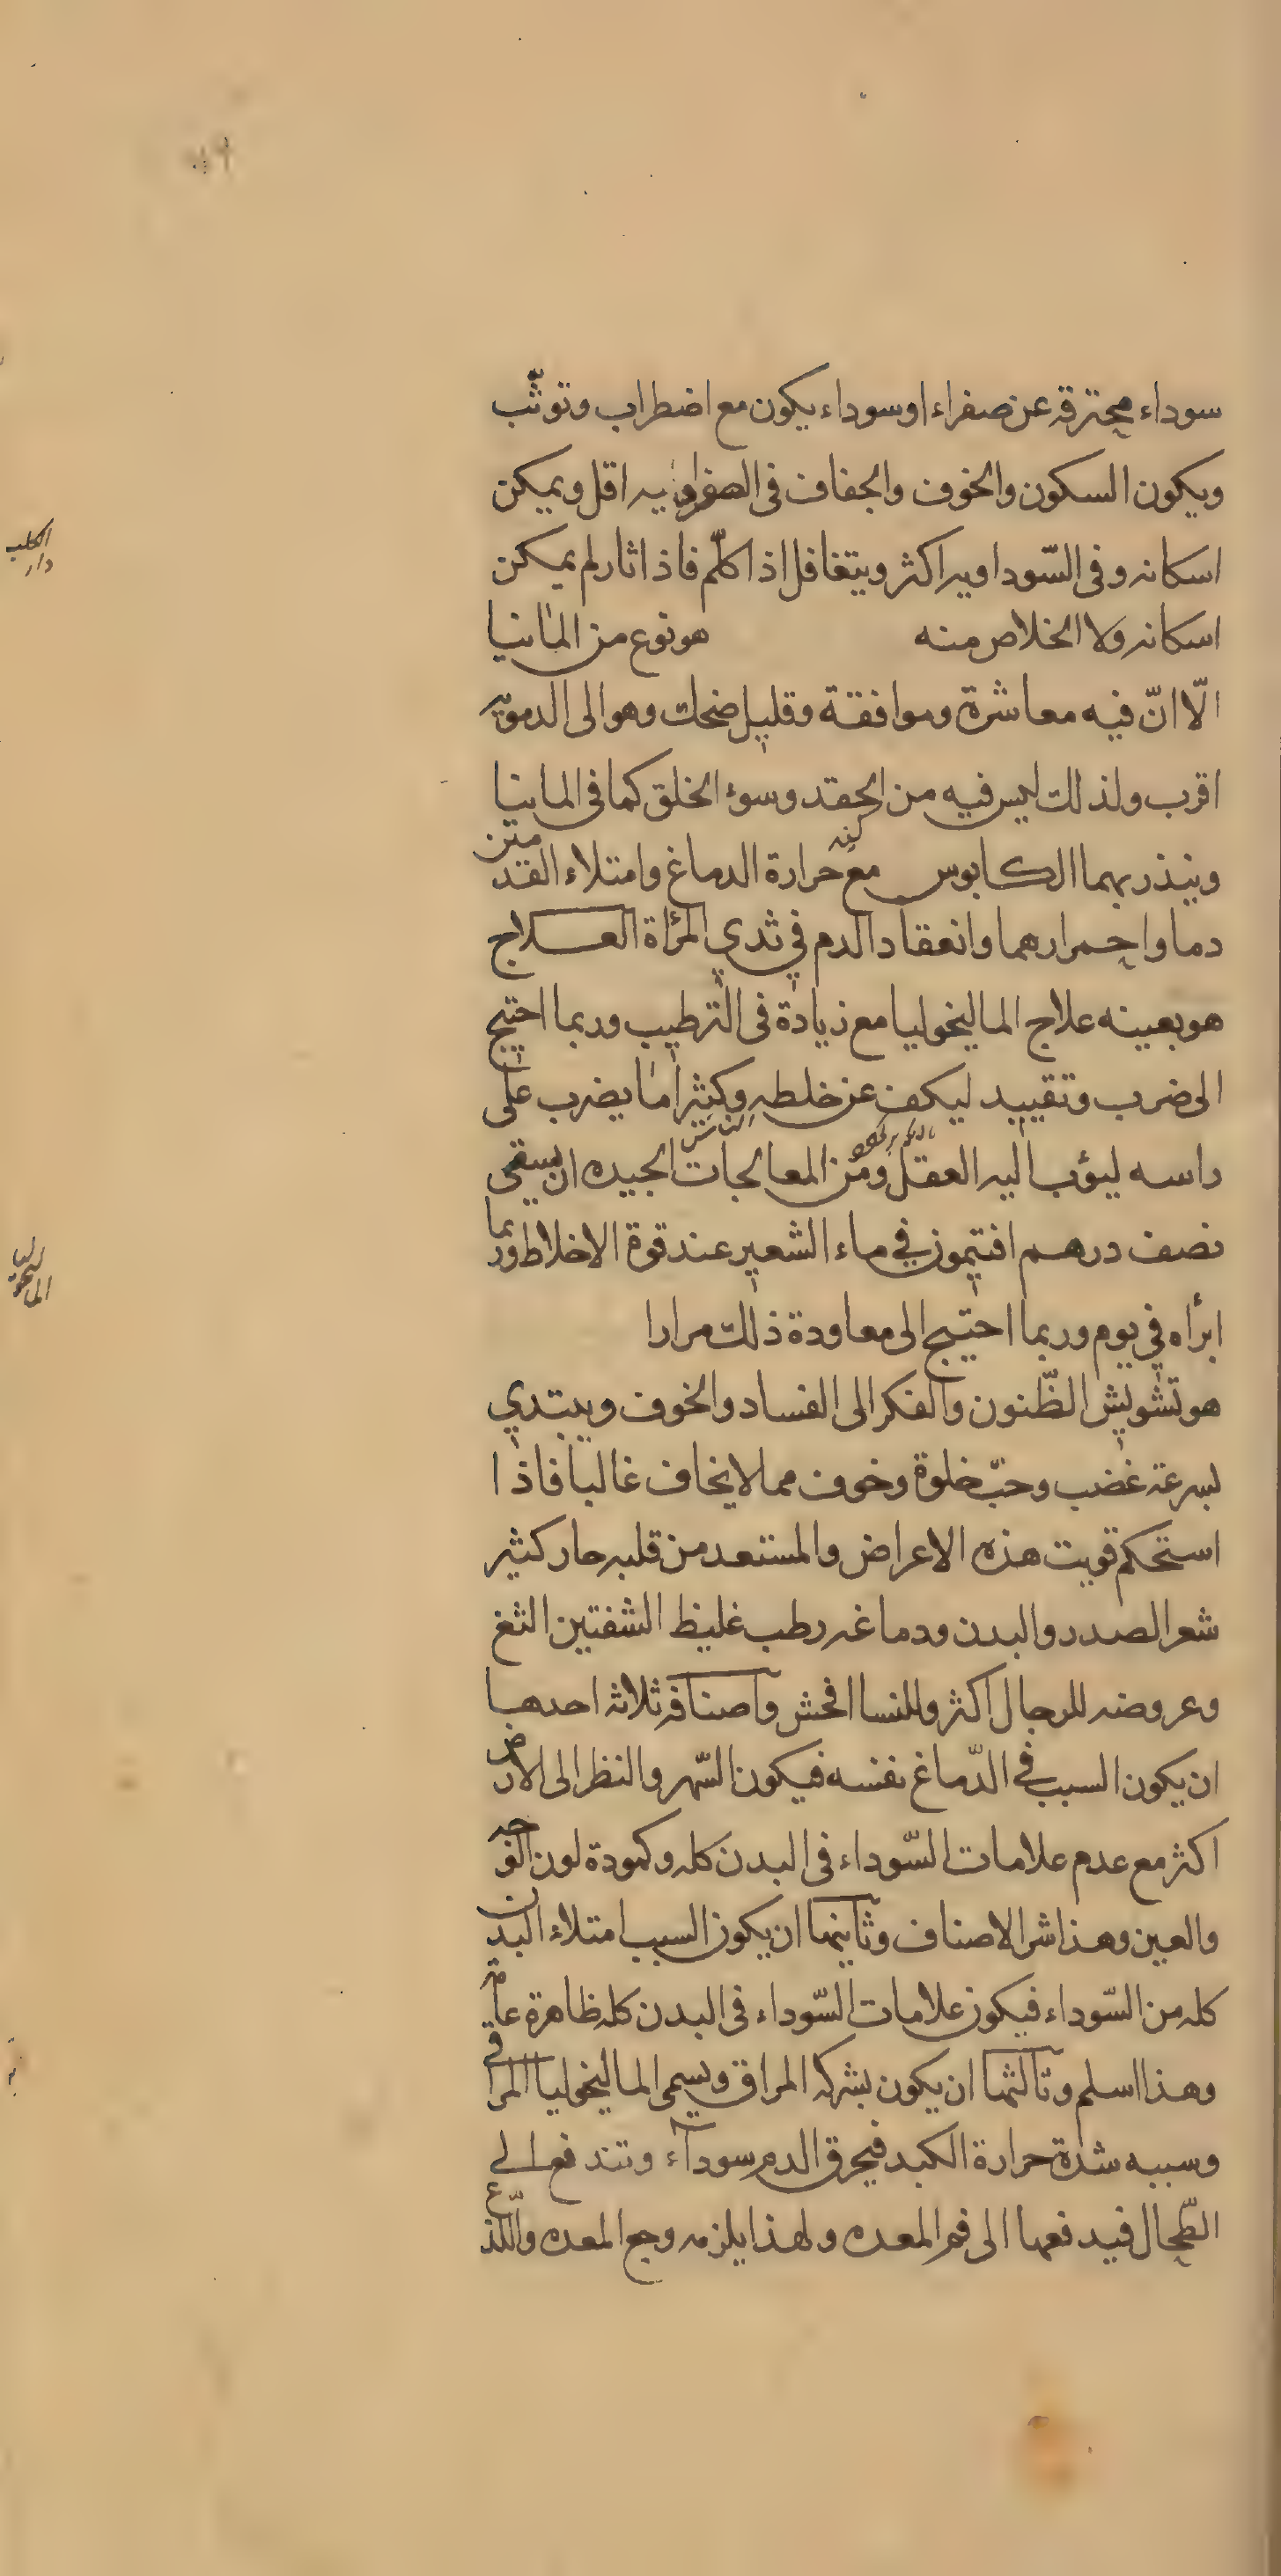 سوداء محترقه عن صفراء او سوداء يكون مع اضطراب وتوثّب
ويكون السكون والخوف والجفاف فى الصفراويه اقل ويمكن
اسكانه وفى السّوداويه اكثر ويتغافل اذا كلّم فاذا ثار لم يمكن
اسكانه ولا الخلاص منه هو نوع من المانيا
الّا انّ فيه معاشرة وموافقة وقليل ضحك وهو الى الدمويه
اقرب ولذلك ليس فيه من الحقد وسوء الخلق كما فى المانيا
وينذر بهما الكابوس مع حرارة الدماغ وامتلاء القدمين
دما واحمرارهما وانعقاد الدم في ثدي المرأة العلاج
هو بعينه علاج الماليخوليا مع زيادة فى الترطيب وربما احتيج
الى ضرب وتقييد ليكف عن خلطه وكثيرا ما يضرب على
راسه ليؤب اليه العقل ومن المعالجات الجيده ان يسقى
نصف درهم افتيمون في ماء الشعير عند قوة الاخلاط وربما
ابرأه في يوم وربما احتيج الى معاودة ذلك مرارا
هو تشويش الظّنون والفكر الى الفساد والخوف ويبتدي
بسرعة غضب وحبّ خلوة وخوف مما لا يخاف غالبا فاذا
استحكم قويت هذه الاعراض والمستعد من قلبه حار كثير
شعر الصدر والبدن ودماغه رطب غليظ الشفتين الثغ
وعروضه للرجال اكثر وللنسا افحش واصنافه ثلاثه احدها
ان يكون السبب في الدّماغ نفسه فيكون السّهر والنظر الى الارض
اكثر مع عدم علامات السّوداء فى البدن كله وكمودة لون الوجه
والعين وهذا شر الاصناف وثانيها ان يكون السبب امتلاء البدن
كله من السّوداء فيكون علامات السّوداء فى البدن كله ظاهرة عامه
وهذا اسلم وثالثها ان يكون بشركه المراق ويسمى الماليخوليا المراقى
وسببه شدة حرارة الكبد فيحرق الدم سوداء وتندفع الى
الطّحال فيدفعها الى فم المعده ولهذا يلزمه وجع المعده واللّذع